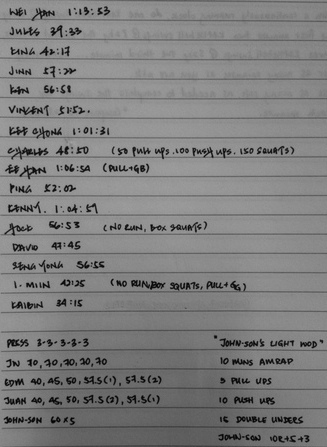 WEI HAN 1:13:53
JULES 39:33
KING 42:17
JINN 57:22
KEN 56:58
VINCENT 51:52.
KEE CHONG 1:01:31
CHARLES 48:50 (50 PULL UPS. 100 PUSH UPS. 150 SQUATS)
EE HAN 1:06:54 (PULL+GB)
PING 52:02
KENNY. 1:04:59
HOCK 56:53 (NO RUN, BOX SQUATS)
DAVID 47:45
SENG YONG 56:55
I-MIIN 42:25 (NO RUN, BOX SQUATS, PULL+GB)
KAIBIN 34:15
PRESS 3-3-3-3-3
JN 70, 70, 70, 70, 70
EDM 40, 45, 50, 57.5(1), 57.5(2)
JUAN 40, 45, 50, 57.5(2), 57.5(1)
JOHN-SON 60x5
"JOHN-SON'S LIGHT WOD"
10 MINS AMRAP
5 PULL UPS
10 PUSH UPS
15 DOUBLE UNDERS
JOHN-SON 10R+5+3